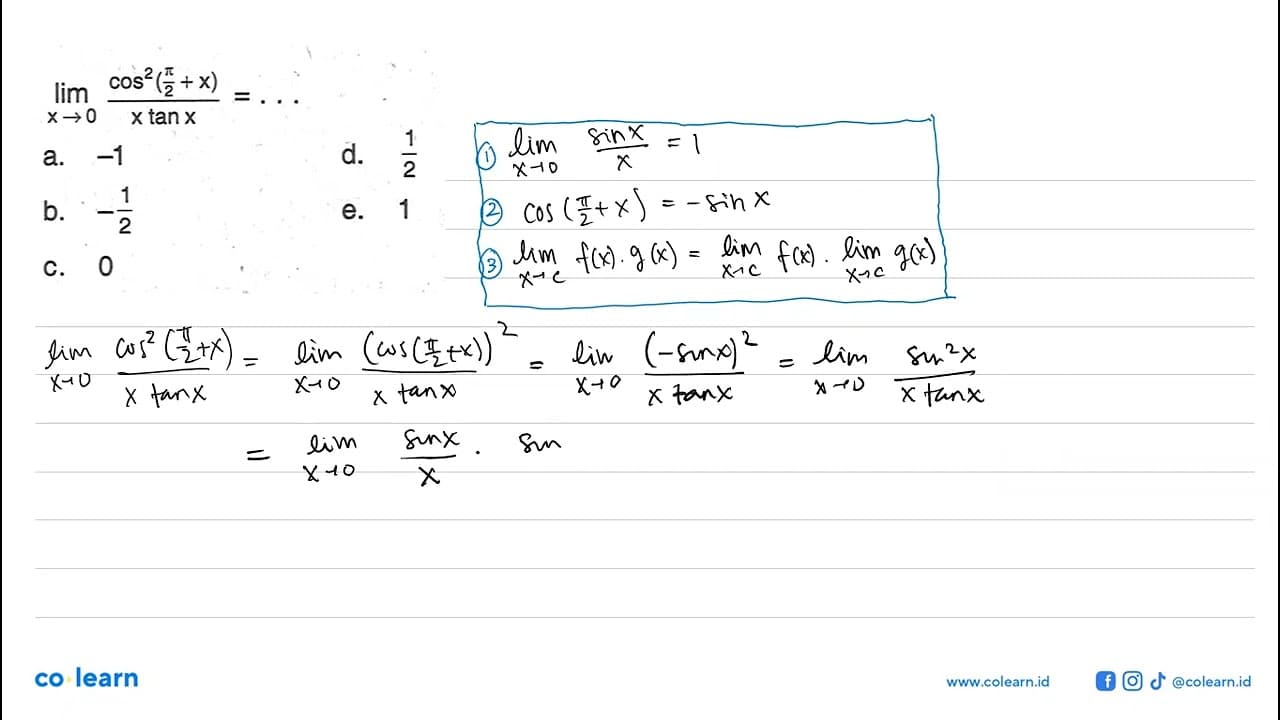 lim x→0 cos²(π/2 + x) / x tan x = . . .
a. –1
b. –1/2
c. 0
d. 1/2
e. 1
① lim x→0 sin x / x = 1
② cos(π/2 + x) = - sin x
③ lim x→c f(x) . g(x) = lim x→c f(x) . lim x→c g(x)
lim x→0 cos²(π/2+x) / x tan x = lim x→0 (cos(π/2+x))² / x tan x = lim x→0 (-sin x)² / x tan x = lim x→0 sin²x / x tan x
= lim x→0 sin x / x . sin
co learn
www.colearn.id
@colearn.id